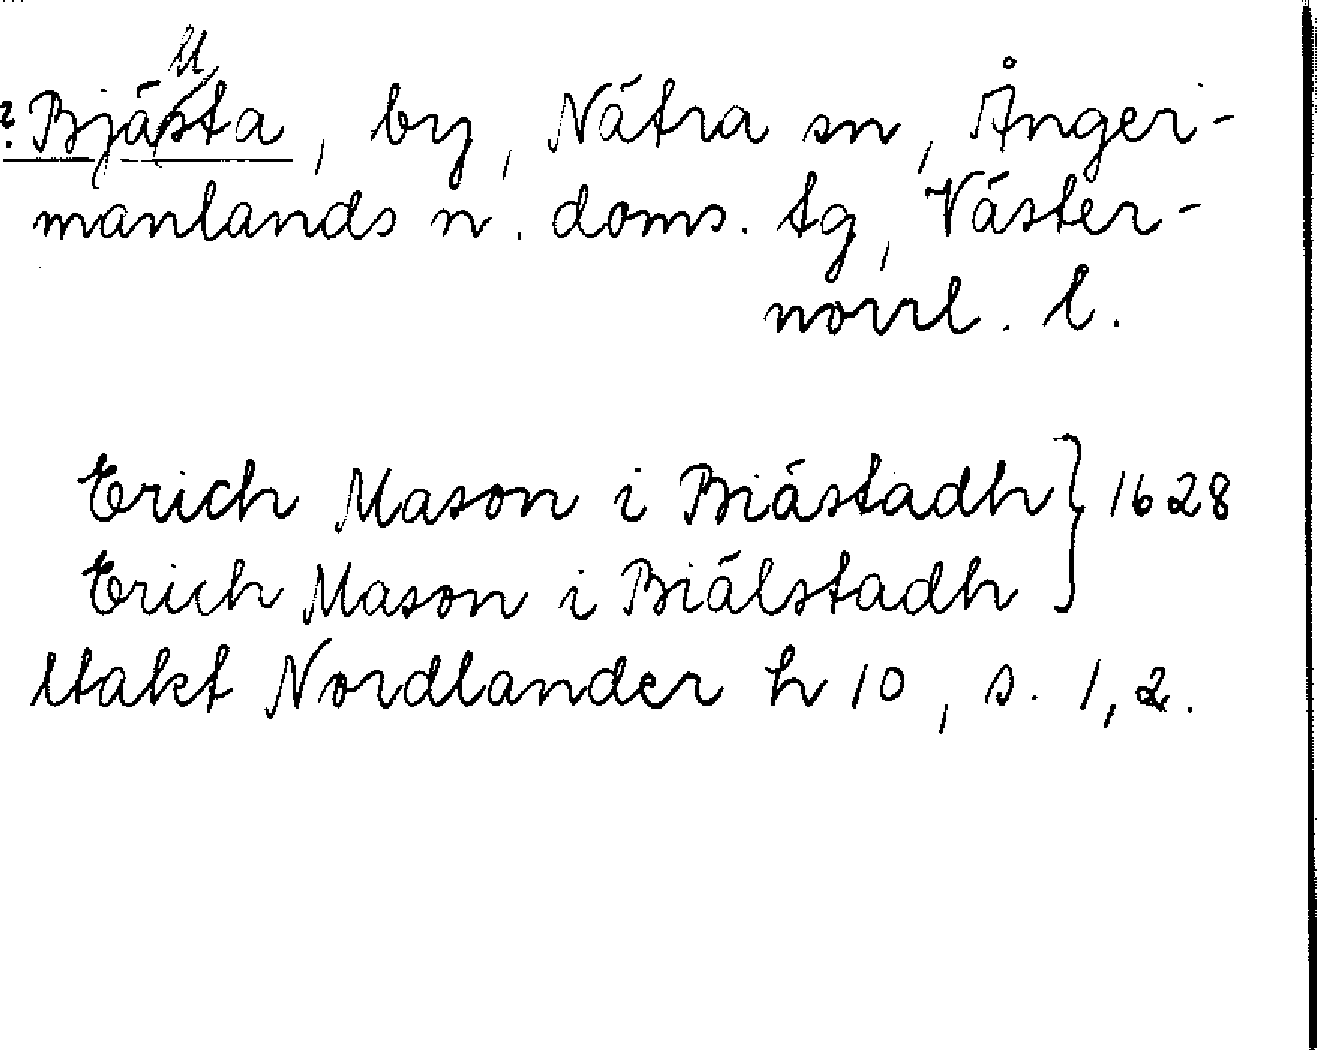 ? Bjästa, by, Nätra sn, Ånger-
manlands n. doms. tg, Väster-
norrl. l.
Erich Mason i Biästadh } 1628
Erich Mason i Biälstadh
Utakt Nordlander h 10, s. 1, 2.